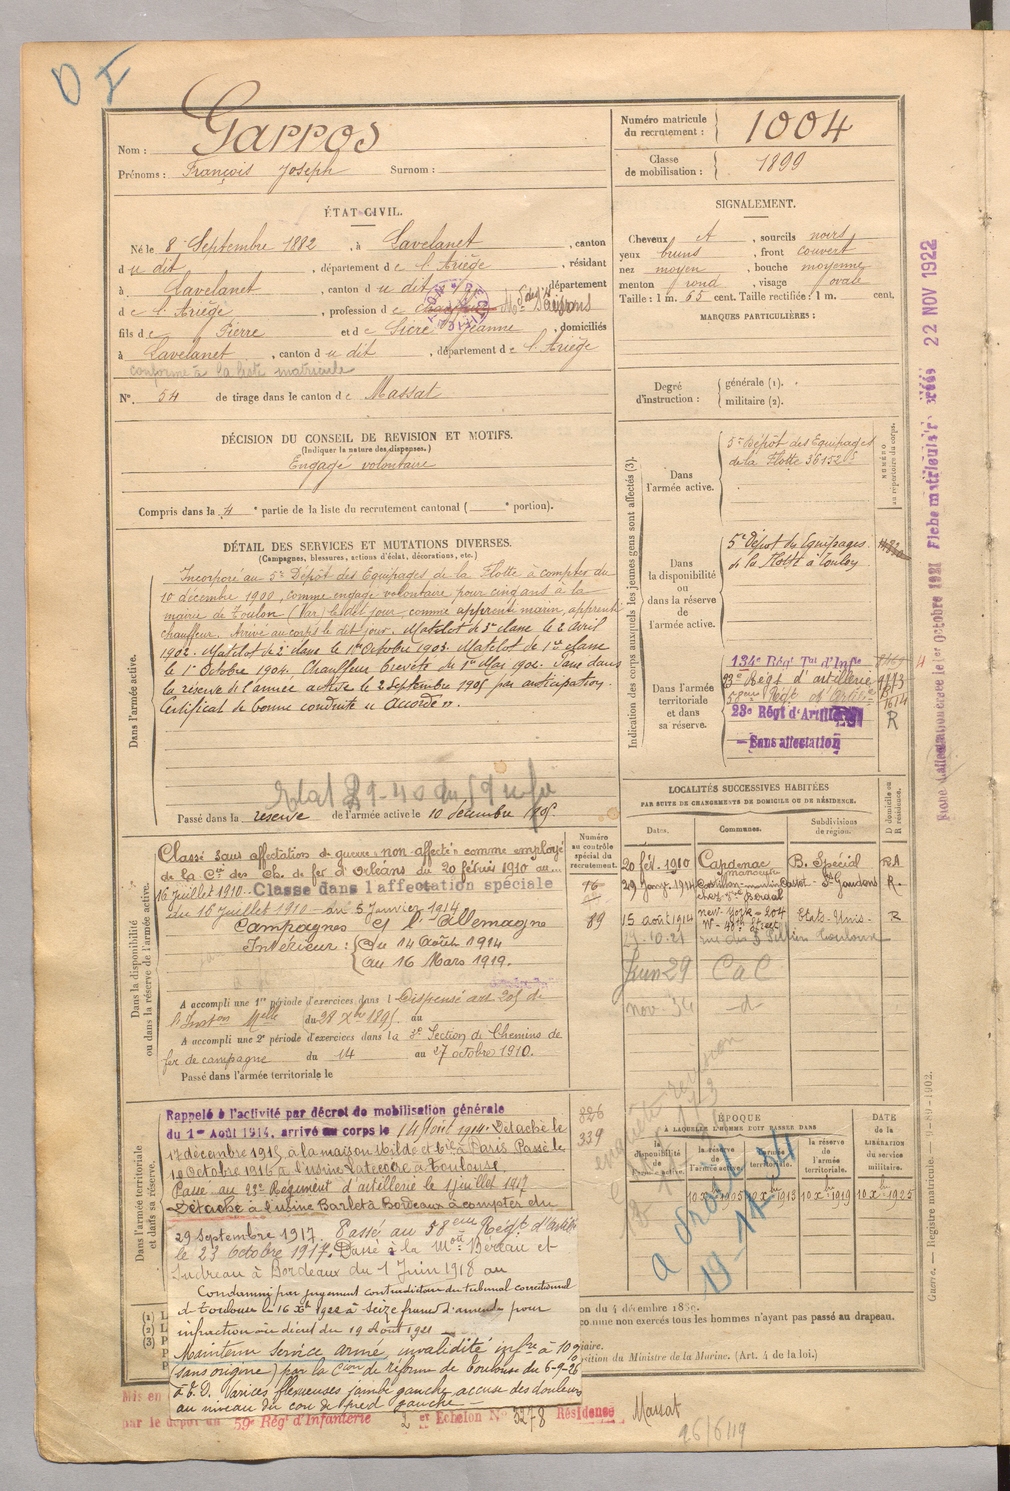 O I
Nom : Garros
Prénoms : François Joseph Surnom :
Numéro matricule du recrutement : 1004
Classe de mobilisation : 1899
ÉTAT CIVIL.
Né le 8 Septembre 1882, à Lavelanet, canton
du dit, département de l'Ariège, résidant
à Lavelanet, canton du dit, département
de l'Ariège, profession de
fils de Pierre et de Sicre Jeanne, domiciliés
à Lavelanet, canton du dit, département de l'Ariège
conforme à la liste matricule
N° 54 de tirage dans le canton de Massat
SIGNALEMENT.
Cheveux et, sourcils noirs
yeux bruns, front couvert
nez moyen, bouche moyenne
menton rond, visage ovale
Taille : 1 m. 65 cent. Taille rectifiée : 1 m. cent.
MARQUES PARTICULIÈRES :
Degré d'instruction : générale (1). militaire (2).
DÉCISION DU CONSEIL DE REVISION ET MOTIFS.
(Indiquer la nature des dispenses.)
Engagé volontaire
Compris dans la 4e partie de la liste du recrutement cantonal ( e portion).
DÉTAIL DES SERVICES ET MUTATIONS DIVERSES.
(Campagnes, blessures, actions d'éclat, décorations, etc.)
Dans l'armée active.
Incorporé au 5e Dépôt des Equipages de la Flotte à compter du
10 décembre 1900, comme engagé volontaire pour cinq ans à la
mairie de Toulon (Var) le dit jour comme apprenti marin, apprenti
chauffeur. Arrivé au corps le dit jour. Matelot de 3e classe le 2 avril
1902. Matelot de 2e classe le 1er Octobre 1903. Matelot de 1re classe
le 1er Octobre 1904. Chauffeur breveté du 1er Mai 1902. Passé dans
la réserve de l'armée active le 2 Septembre 1905 par anticipation.
Certificat de bonne conduite "Accordé".
Passé dans la réserve de l'armée active le 10 décembre 1905.
Indication des corps auxquels les jeunes gens sont affectés (3).
NUMÉRO au répertoire du corps.
Dans l'armée active.
5e Dépôt des Equipages
de la Flotte 36152
Dans la disponibilité ou dans la réserve de l'armée active.
5e Dépôt des Equipages
de la Flotte à Toulon
Dans l'armée territoriale et dans sa réserve.
134e Régt Tal d'Infie
23e Régt d'artillerie
23e Régt d'Artillerie
R
Sans affectation
LOCALITÉS SUCCESSIVES HABITÉES
PAR SUITE DE CHANGEMENTS DE DOMICILE OU DE RÉSIDENCE.
Dates. Communes. Subdivisions de région. D domicile ou R résidence.
20 fév. 1910 Capdenac B. Spécial RA
29 Janv. 1914 St Gaudens R.
15 août 1914 New-York - 204 W- 43th Street Etats-Unis - R
29.10.21 Toulouse
Juin 29 CaC
nov. 34 -d-
Dans la disponibilité ou dans la réserve de l'armée active.
Numéro au contrôle spécial du recrutement.
Classé sans affectation de guerre "non affecté" comme employé
de la Cie des Ch. de fer d'Orléans du 20 février 1910 au
16 juillet 1910. Classé dans l'affectation spéciale
du 16 juillet 1910 au 5 Janvier 1914
Campagnes C/ l'Allemagne
Intérieur : du 14 août 1914
au 16 Mars 1919.
16
89
A accompli une 1re période d'exercices dans l Dispensé
du 28 Xbre 1895 au
A accompli une 2e période d'exercices dans la 3e Section de Chemins de
fer de campagne du 14 au 27 octobre 1910.
Passé dans l'armée territoriale le
Dans l'armée territoriale et dans sa réserve.
Rappelé à l'activité par décret de mobilisation générale
du 1er Août 1914, arrivé au corps le 14 Août 1914. Détaché le
17 décembre 1915 à la maison Wilde et Cie à Paris Passé le
10 Octobre 1916 à l'usine Latécoère à Toulouse
Passé au 23e Régiment d'artillerie le 1 juillet 1917
Détaché à l'usine Barlet à Bordeaux à compter du
29 Septembre 1917. Passé au 58eme Régt d'artie
le 23 Octobre 1917. Passé à la Mon Béreau et
Judreau à Bordeaux du 1 Juin 1918 au
Condamné par jugement contradictoire du tribunal correctionnel
de Toulouse le 16 Xbre 1922 à seize francs d'amende pour
infraction au décret du 19 Août 1921
Maintenu service armé, invalidité infre à 10%
(sans origine) par la Con de réforme de Toulouse du 6-9-26
Varices flexueuses jambe gauche, accuse des douleurs
au niveau du cou de pied gauche.
826
339
ÉPOQUE À LAQUELLE L'HOMME DOIT PASSER DANS
la disponibilité de l'armée active. la réserve de l'armée active. l'armée territoriale. la réserve de l'armée territoriale.
DATE DE LA LIBÉRATION du service militaire.
10 Xbre 1905 10 Xbre 1913 10 Xbre 1919 10 Xbre 1925
a droit
19-12-34
(1)
(2)
(3)
on du 4 décembre 1889.
comme non exercés tous les hommes n'ayant pas passé au drapeau.
osition du Ministre de la Marine. (Art. 4 de la loi.)
Mis en
par le dépôt du 59e Régt d'Infanterie 2 et Echelon N° 3278 Résidence Massat
26/6/19
Fiche matriculaire 22 NOV 1922
Guerre. — Registre matricule. — 9-89-1902.